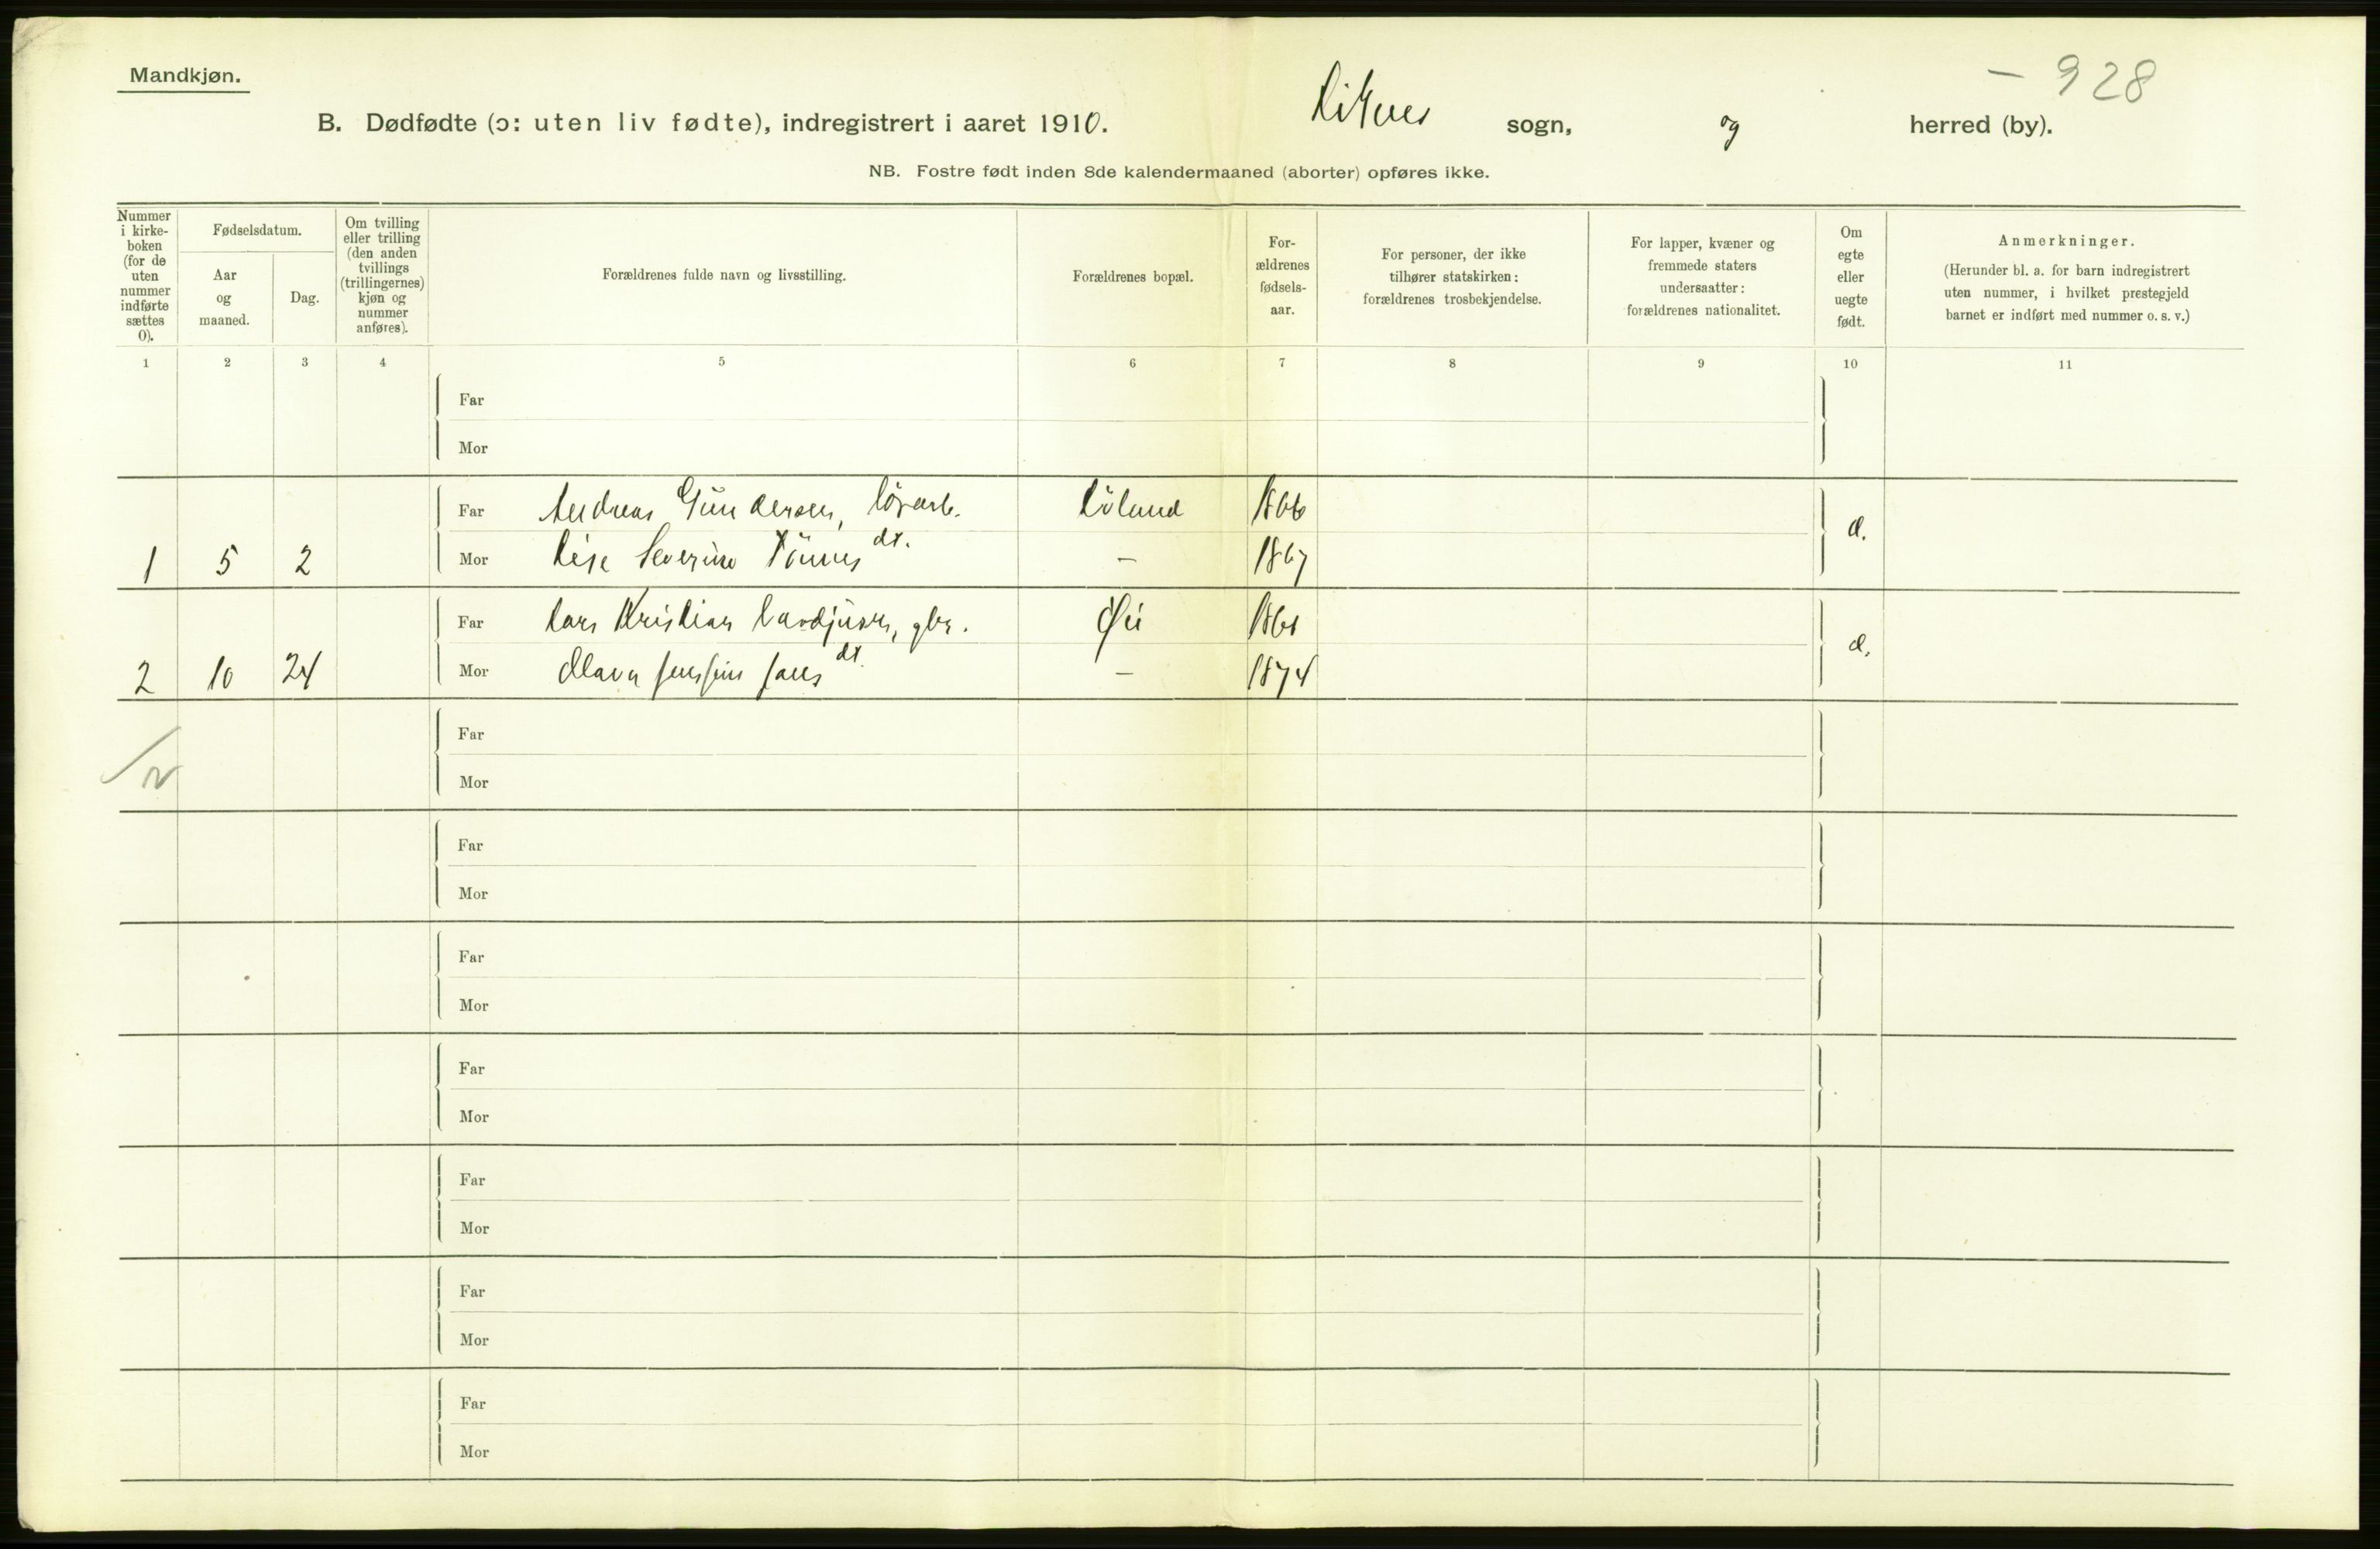 Mandkjøn.
- 928
B. Dødfødte (ɔ: uten liv fødte), indregistrert i aaret 1910. sogn, og herred (by).
NB. Fostre født inden 8de kalendermaaned (aborter) opføres ikke.
Nummer i kirke-boken (for de uten nummer indførte sættes 0).
Fødselsdatum.
Aar og maaned.
Dag.
Om tvilling eller trilling (den anden tvillings (trillingernes) kjøn og nummer anføres).
Forældrenes fulde navn og livsstilling.
Forældrenes bopæl.
For-ældrenes fødsels-aar.
For personer, der ikke tilhører statskirken: forældrenes trosbekjendelse.
For lapper, kvæner og fremmede staters undersaatter: forældrenes nationalitet.
Om egte eller uegte født.
Anmerkninger.
(Herunder bl. a. for barn indregistrert uten nummer, i hvilket prestegjeld barnet er indført med nummer o. s. v.)
1 2 3 4 5 6 7 8 9 10 11
Far
Mor
Far Andreas Gundersen, 1866
1 5 2 Mor Severine dt. — 1867
Far Lars Kristian gbr. Øie 1861
2 10 24 Mor dt. — 1874
Far
Mor
Far
Mor
Far
Mor
Far
Mor
Far
Mor
Far
Mor
Far
Mor